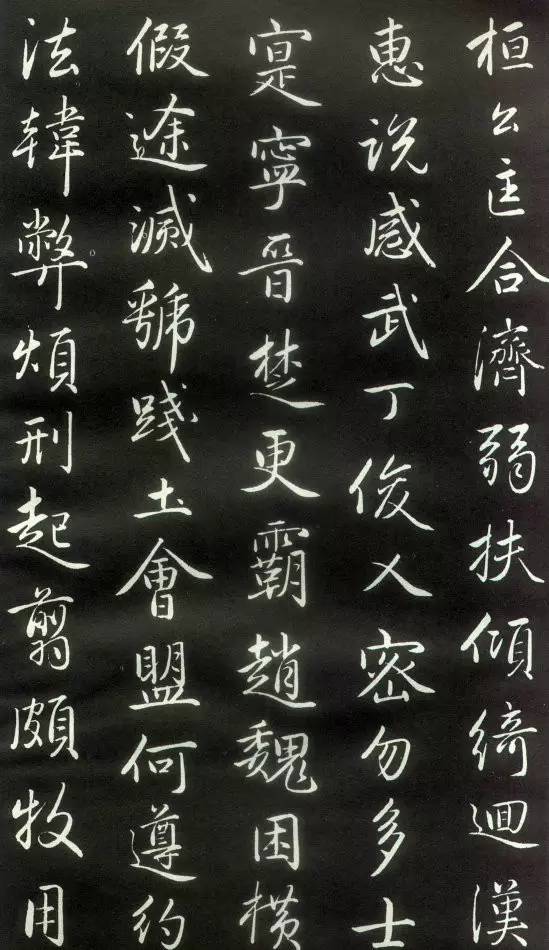 桓公匡合濟弱扶傾綺迴漢
惠说感武丁俊乂密勿多士
寔寧晉楚更霸趙魏困横
假途滅虢踐土會盟何遵約
法韓弊煩刑起翦頗牧用